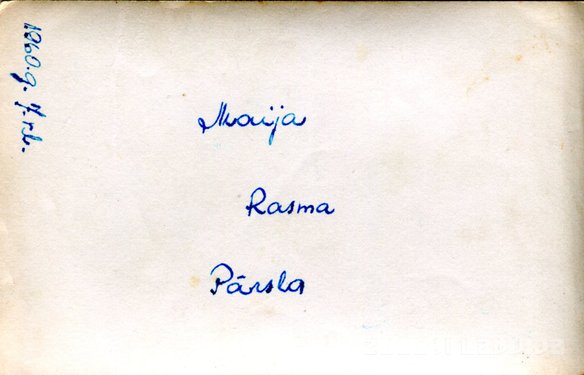 1960.g. 7. kl.
Maija
Rasma
Pārsla